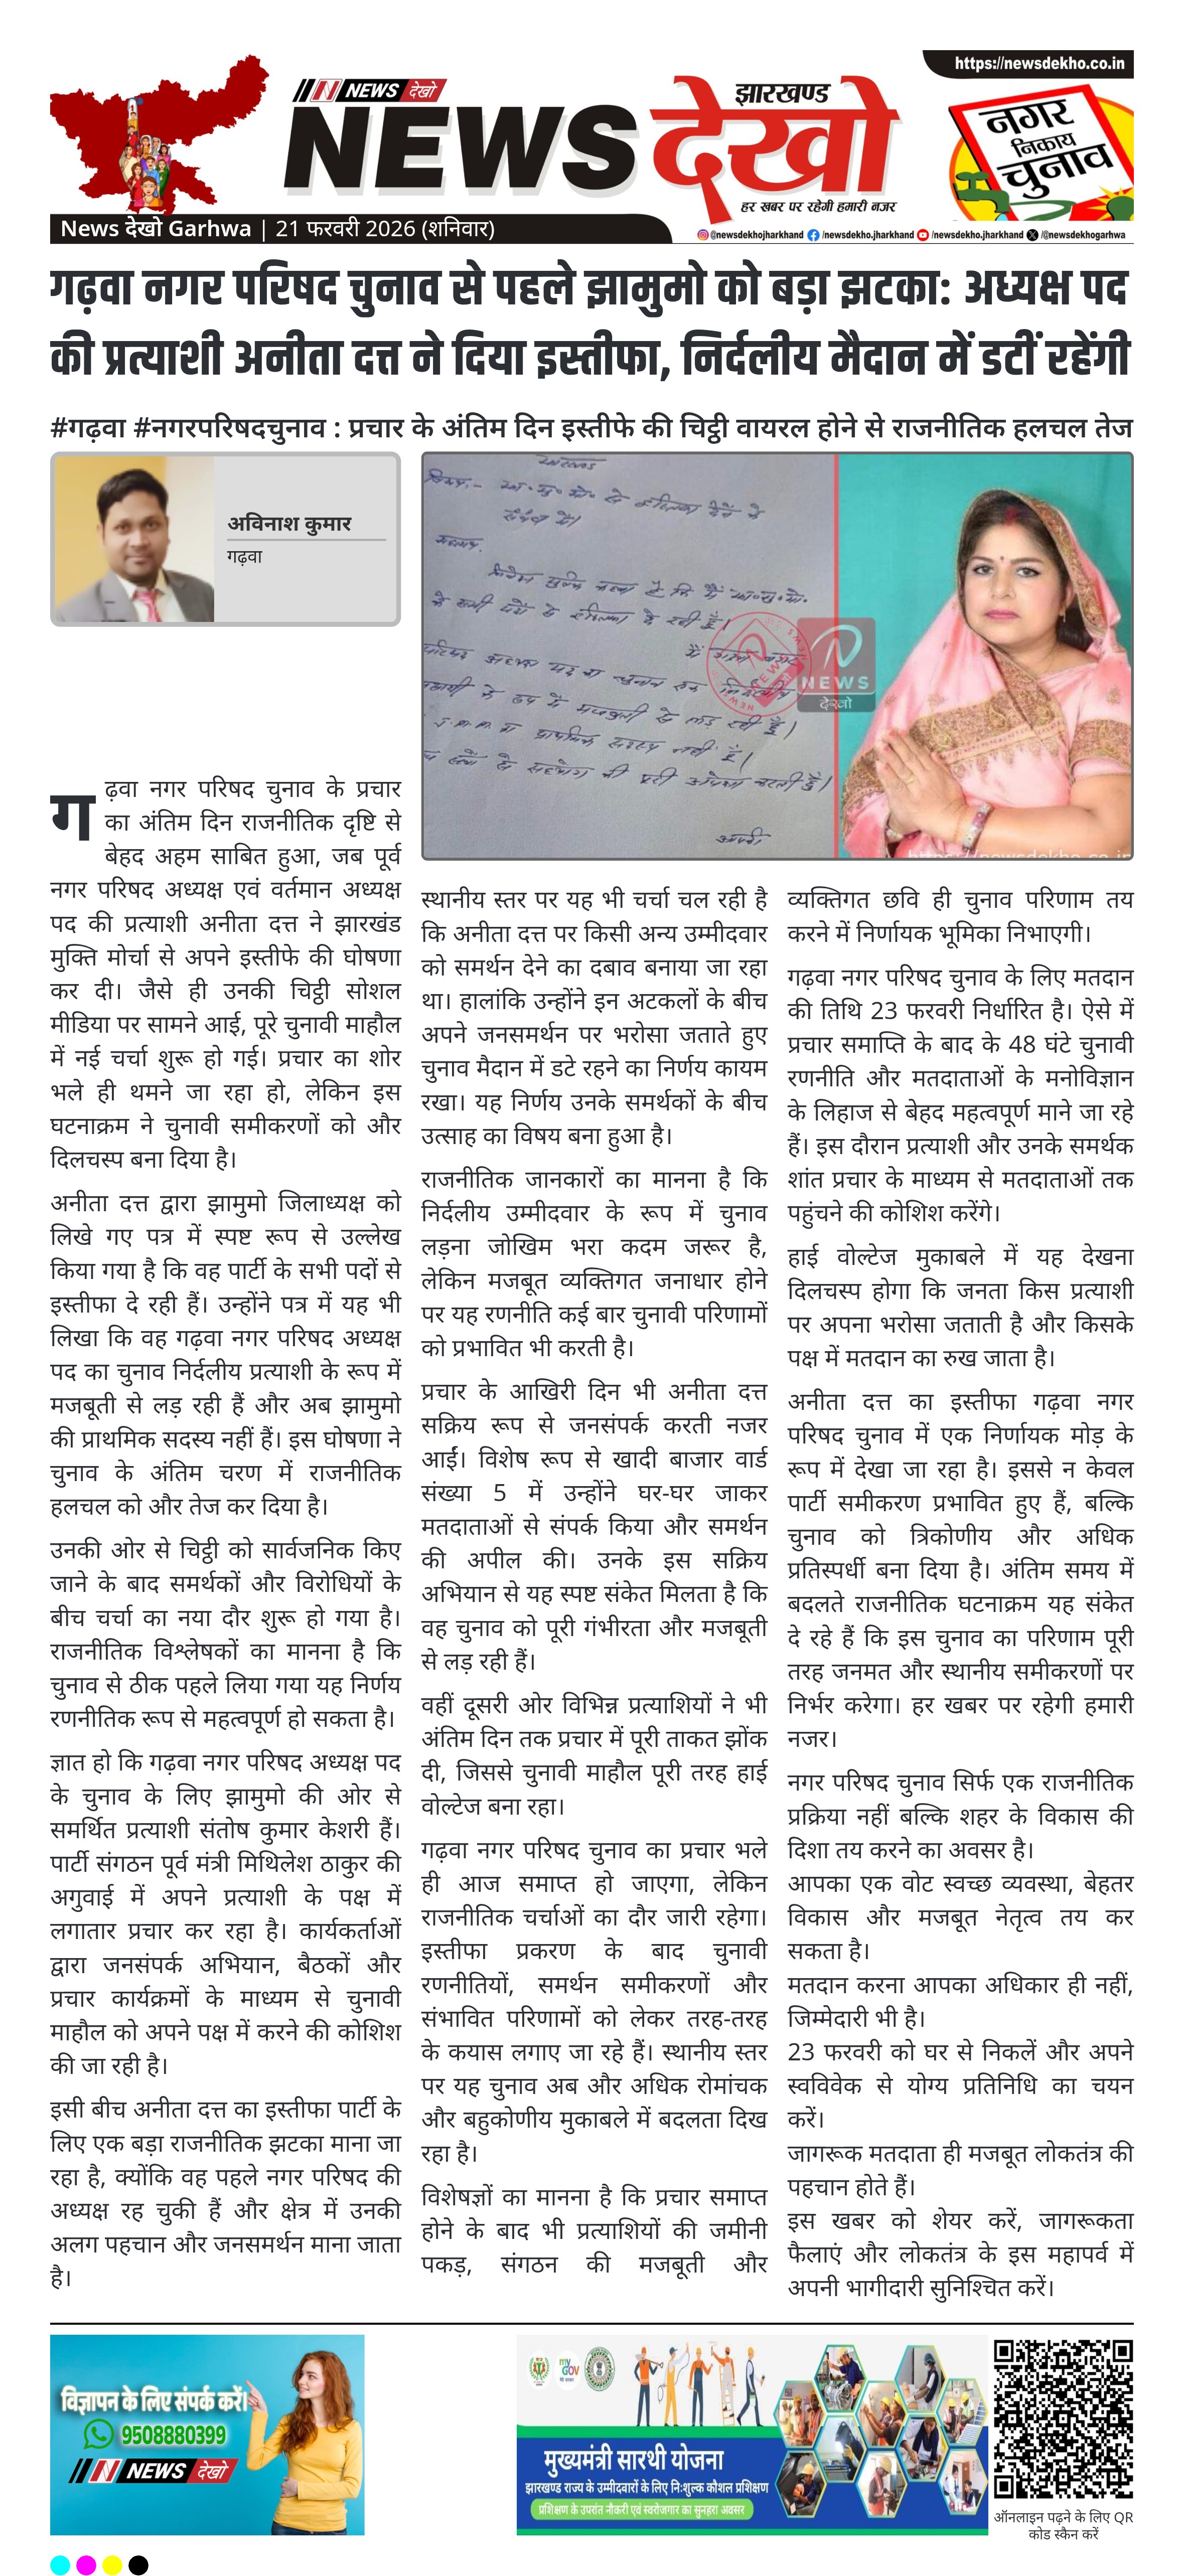 https://newsdekho.co.in
NEWS देखो
झारखण्ड
NEWS देखो
हर खबर पर रहेगी हमारी नजर
नगर
निकाय
चुनाव
News देखो Garhwa | 21 फरवरी 2026 (शनिवार)
@newsdekhojharkhand /newsdekho.jharkhand /newsdekho.jharkhand /@newsdekhogarhwa
गढ़वा नगर परिषद चुनाव से पहले झामुमो को बड़ा झटका: अध्यक्ष पद
की प्रत्याशी अनीता दत्त ने दिया इस्तीफा, निर्दलीय मैदान में डटीं रहेंगी
#गढ़वा #नगरपरिषदचुनाव : प्रचार के अंतिम दिन इस्तीफे की चिट्ठी वायरल होने से राजनीतिक हलचल तेज
अविनाश कुमार
गढ़वा
NEWS
देखो
https://newsdekho.co.in
गढ़वा नगर परिषद चुनाव के प्रचार
का अंतिम दिन राजनीतिक दृष्टि से
बेहद अहम साबित हुआ, जब पूर्व
नगर परिषद अध्यक्ष एवं वर्तमान अध्यक्ष
पद की प्रत्याशी अनीता दत्त ने झारखंड
मुक्ति मोर्चा से अपने इस्तीफे की घोषणा
कर दी। जैसे ही उनकी चिट्ठी सोशल
मीडिया पर सामने आई, पूरे चुनावी माहौल
में नई चर्चा शुरू हो गई। प्रचार का शोर
भले ही थमने जा रहा हो, लेकिन इस
घटनाक्रम ने चुनावी समीकरणों को और
दिलचस्प बना दिया है।
अनीता दत्त द्वारा झामुमो जिलाध्यक्ष को
लिखे गए पत्र में स्पष्ट रूप से उल्लेख
किया गया है कि वह पार्टी के सभी पदों से
इस्तीफा दे रही हैं। उन्होंने पत्र में यह भी
लिखा कि वह गढ़वा नगर परिषद अध्यक्ष
पद का चुनाव निर्दलीय प्रत्याशी के रूप में
मजबूती से लड़ रही हैं और अब झामुमो
की प्राथमिक सदस्य नहीं हैं। इस घोषणा ने
चुनाव के अंतिम चरण में राजनीतिक
हलचल को और तेज कर दिया है।
उनकी ओर से चिट्ठी को सार्वजनिक किए
जाने के बाद समर्थकों और विरोधियों के
बीच चर्चा का नया दौर शुरू हो गया है।
राजनीतिक विश्लेषकों का मानना है कि
चुनाव से ठीक पहले लिया गया यह निर्णय
रणनीतिक रूप से महत्वपूर्ण हो सकता है।
ज्ञात हो कि गढ़वा नगर परिषद अध्यक्ष पद
के चुनाव के लिए झामुमो की ओर से
समर्थित प्रत्याशी संतोष कुमार केशरी हैं।
पार्टी संगठन पूर्व मंत्री मिथिलेश ठाकुर की
अगुवाई में अपने प्रत्याशी के पक्ष में
लगातार प्रचार कर रहा है। कार्यकर्ताओं
द्वारा जनसंपर्क अभियान, बैठकों और
प्रचार कार्यक्रमों के माध्यम से चुनावी
माहौल को अपने पक्ष में करने की कोशिश
की जा रही है।
इसी बीच अनीता दत्त का इस्तीफा पार्टी के
लिए एक बड़ा राजनीतिक झटका माना जा
रहा है, क्योंकि वह पहले नगर परिषद की
अध्यक्ष रह चुकी हैं और क्षेत्र में उनकी
अलग पहचान और जनसमर्थन माना जाता
है।
स्थानीय स्तर पर यह भी चर्चा चल रही है
कि अनीता दत्त पर किसी अन्य उम्मीदवार
को समर्थन देने का दबाव बनाया जा रहा
था। हालांकि उन्होंने इन अटकलों के बीच
अपने जनसमर्थन पर भरोसा जताते हुए
चुनाव मैदान में डटे रहने का निर्णय कायम
रखा। यह निर्णय उनके समर्थकों के बीच
उत्साह का विषय बना हुआ है।
राजनीतिक जानकारों का मानना है कि
निर्दलीय उम्मीदवार के रूप में चुनाव
लड़ना जोखिम भरा कदम जरूर है,
लेकिन मजबूत व्यक्तिगत जनाधार होने
पर यह रणनीति कई बार चुनावी परिणामों
को प्रभावित भी करती है।
प्रचार के आखिरी दिन भी अनीता दत्त
सक्रिय रूप से जनसंपर्क करती नजर
आईं। विशेष रूप से खादी बाजार वार्ड
संख्या 5 में उन्होंने घर-घर जाकर
मतदाताओं से संपर्क किया और समर्थन
की अपील की। उनके इस सक्रिय
अभियान से यह स्पष्ट संकेत मिलता है कि
वह चुनाव को पूरी गंभीरता और मजबूती
से लड़ रही हैं।
वहीं दूसरी ओर विभिन्न प्रत्याशियों ने भी
अंतिम दिन तक प्रचार में पूरी ताकत झोंक
दी, जिससे चुनावी माहौल पूरी तरह हाई
वोल्टेज बना रहा।
गढ़वा नगर परिषद चुनाव का प्रचार भले
ही आज समाप्त हो जाएगा, लेकिन
राजनीतिक चर्चाओं का दौर जारी रहेगा।
इस्तीफा प्रकरण के बाद चुनावी
रणनीतियों, समर्थन समीकरणों और
संभावित परिणामों को लेकर तरह-तरह
के कयास लगाए जा रहे हैं। स्थानीय स्तर
पर यह चुनाव अब और अधिक रोमांचक
और बहुकोणीय मुकाबले में बदलता दिख
रहा है।
विशेषज्ञों का मानना है कि प्रचार समाप्त
होने के बाद भी प्रत्याशियों की जमीनी
पकड़, संगठन की मजबूती और
व्यक्तिगत छवि ही चुनाव परिणाम तय
करने में निर्णायक भूमिका निभाएगी।
गढ़वा नगर परिषद चुनाव के लिए मतदान
की तिथि 23 फरवरी निर्धारित है। ऐसे में
प्रचार समाप्ति के बाद के 48 घंटे चुनावी
रणनीति और मतदाताओं के मनोविज्ञान
के लिहाज से बेहद महत्वपूर्ण माने जा रहे
हैं। इस दौरान प्रत्याशी और उनके समर्थक
शांत प्रचार के माध्यम से मतदाताओं तक
पहुंचने की कोशिश करेंगे।
हाई वोल्टेज मुकाबले में यह देखना
दिलचस्प होगा कि जनता किस प्रत्याशी
पर अपना भरोसा जताती है और किसके
पक्ष में मतदान का रुख जाता है।
अनीता दत्त का इस्तीफा गढ़वा नगर
परिषद चुनाव में एक निर्णायक मोड़ के
रूप में देखा जा रहा है। इससे न केवल
पार्टी समीकरण प्रभावित हुए हैं, बल्कि
चुनाव को त्रिकोणीय और अधिक
प्रतिस्पर्धी बना दिया है। अंतिम समय में
बदलते राजनीतिक घटनाक्रम यह संकेत
दे रहे हैं कि इस चुनाव का परिणाम पूरी
तरह जनमत और स्थानीय समीकरणों पर
निर्भर करेगा। हर खबर पर रहेगी हमारी
नजर।
नगर परिषद चुनाव सिर्फ एक राजनीतिक
प्रक्रिया नहीं बल्कि शहर के विकास की
दिशा तय करने का अवसर है।
आपका एक वोट स्वच्छ व्यवस्था, बेहतर
विकास और मजबूत नेतृत्व तय कर
सकता है।
मतदान करना आपका अधिकार ही नहीं,
जिम्मेदारी भी है।
23 फरवरी को घर से निकलें और अपने
स्वविवेक से योग्य प्रतिनिधि का चयन
करें।
जागरूक मतदाता ही मजबूत लोकतंत्र की
पहचान होते हैं।
इस खबर को शेयर करें, जागरूकता
फैलाएं और लोकतंत्र के इस महापर्व में
अपनी भागीदारी सुनिश्चित करें।
विज्ञापन के लिए संपर्क करें।
9508880399
NEWS देखो
my GOV
मुख्यमंत्री सारथी योजना
झारखण्ड राज्य के उम्मीदवारों के लिए निःशुल्क कौशल प्रशिक्षण
प्रशिक्षण के उपरांत नौकरी एवं स्वरोजगार का सुनहरा अवसर
ऑनलाइन पढ़ने के लिए QR
कोड स्कैन करें